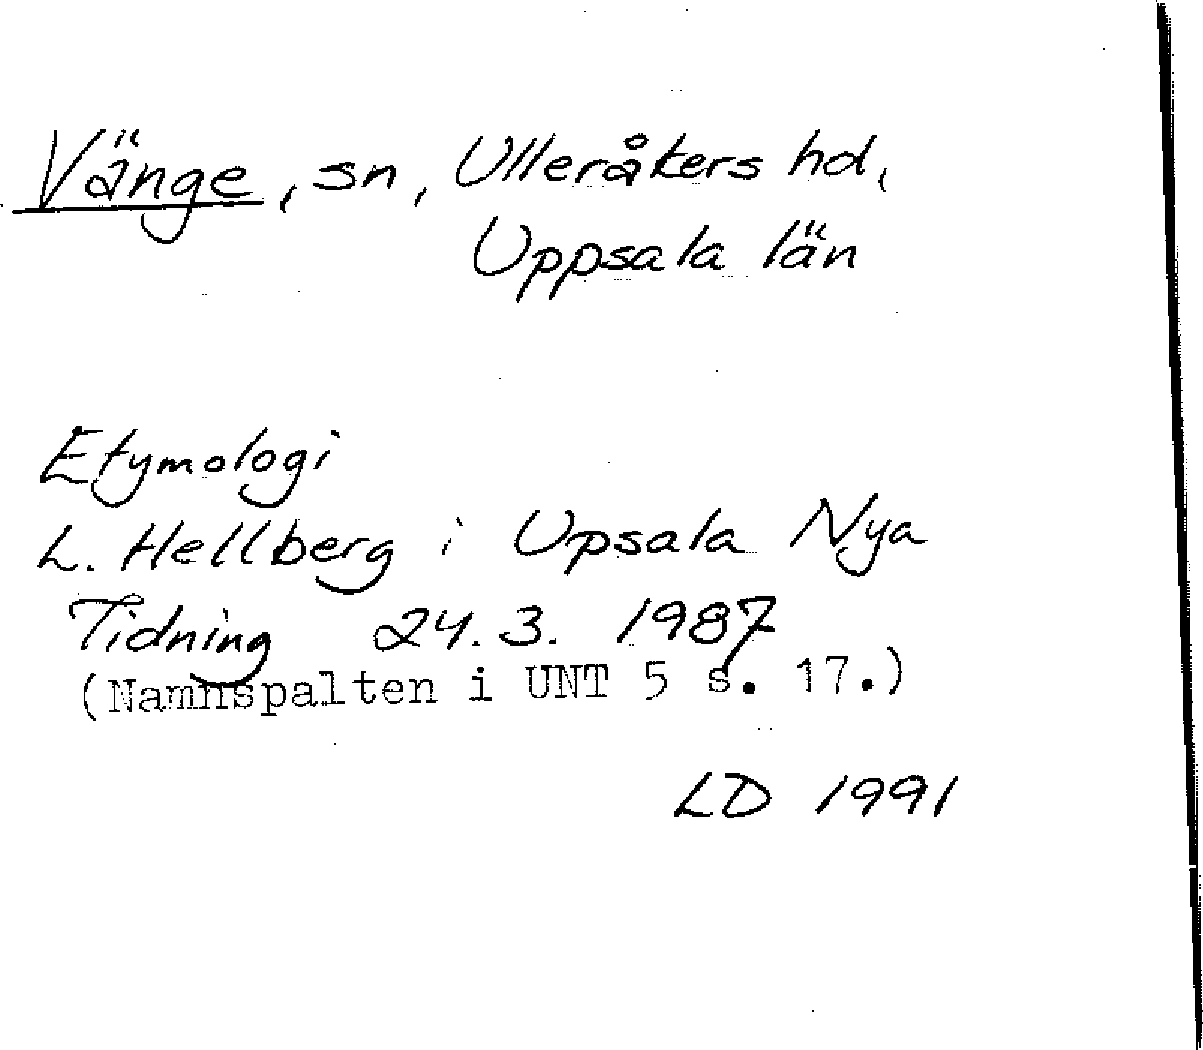 Vänge, sn, Ulleråkers hd,
Uppsala län
Etymologi
L. Hellberg i Upsala Nya
Tidning 24.3. 1987
(Namnspalten i UNT 5 s. 17.)
LD 1991